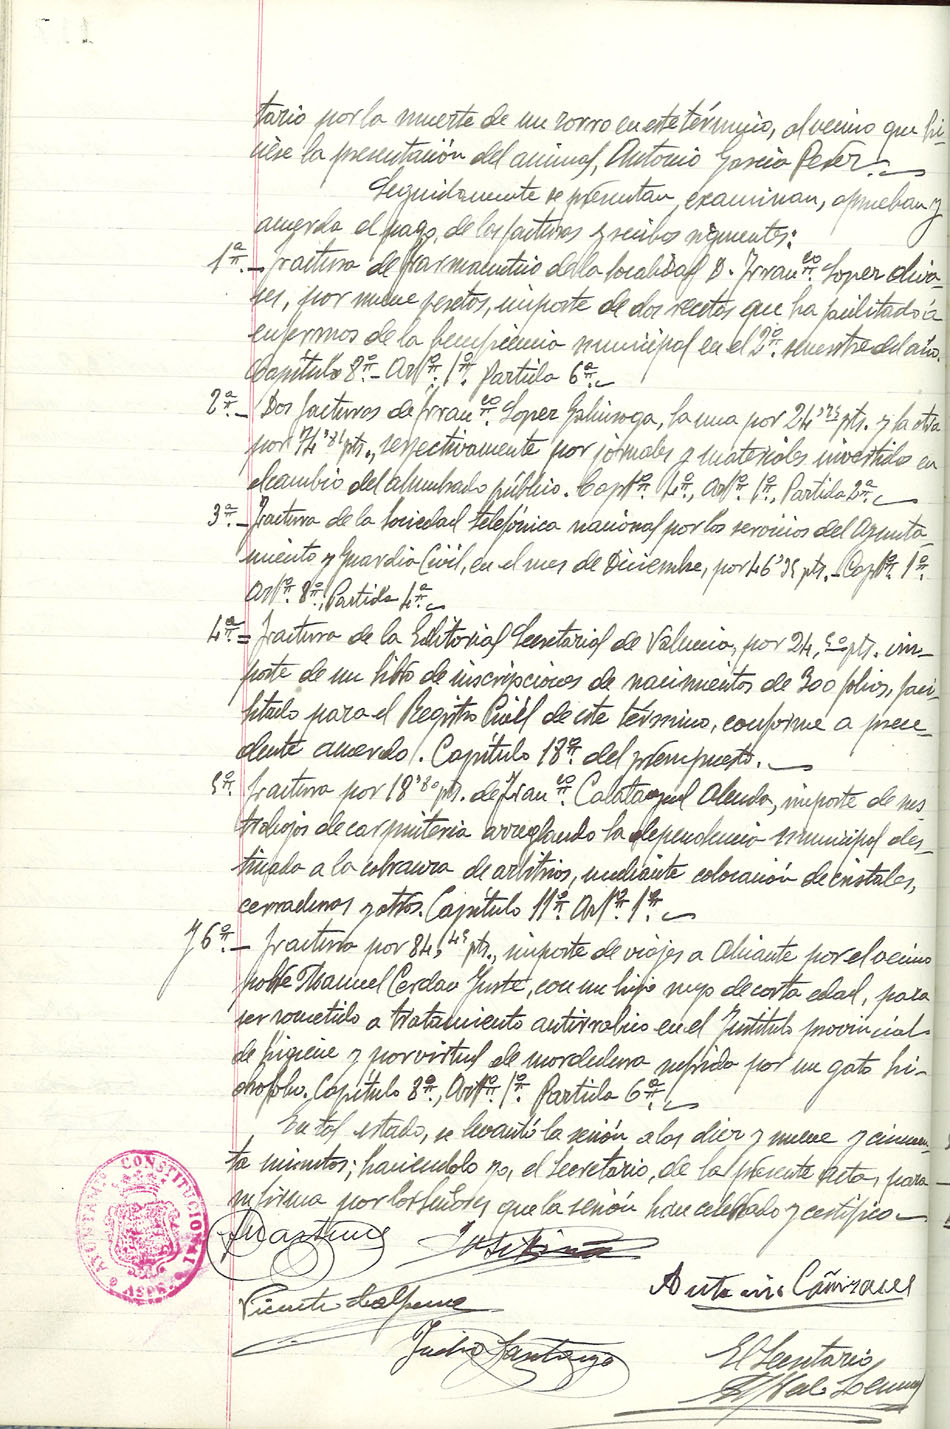 tario por la muerte de un zorro en este término, al vecino que hi-
ciese la presentación del animal, Antonio García Peréz.
Seguidamente se presentan, examinan, aprueban y
acuerda el pago, de las facturas y recibos siguientes:
1ª.- Factura de farmaceutico de la localidad D. Franᶜᵒ. Lopez Oliva-
res, por nueve pesetas, importe de dos recetas que ha facilitado á
enfermos de la beneficencia municipal en el 2º. semestre del año.
Capítulo 8º.- Artº. 1º. Partida 6ª.
2ª.- Dos facturas de Franᶜᵒ Lopez Galinsoga, la una por 24'75 pts. y la otra
por 74'81 pts., respectivamente por jornales y materiales invertidos en
el cambio del alumbrado público. Captº. 4º, Artº. 1º, Partida 2ª.
3ª.- Factura de la Sociedad telefónica nacional por los servicios del Ayunta-
miento y Guardia Civil, en el mes de Diciembre, por 46'35 pts.- Captº. 1º.
Artº. 8º, Partida 4ª.
4ª.= Factura de la Editorial Secretarial de Valencia, por 24,50 pts. im-
porte de un libro de inscripciones de nacimientos de 300 folios, faci-
litado para el Registro Civil de este término, conforme a prece-
dente acuerdo. Capítulo 18º del presupuesto.
5ª. Factura por 18'80 pts. de Franᶜᵒ. Calatayud Alenda, importe de sus
trabajos de carpintería arreglando la dependencia municipal des-
tinada a la cobranza de arbitrios, mediante colocación de cristales,
cerraduras y otros. Capítulo 11º Artº. 1º.
Y 6ª.- Factura por 84,45 pts., importe de viajes a Alicante por el vecino
pobre Manuel Cerdan Juste, con un hijo suyo de corta edad, para
ser sometido a tratamiento antirrabico en el Instituto provincial
de higiene y por virtud de mordedura sufrida por un gato hi-
drofobo. Capítulo 8º, Artº. 1º. Partida 6ª.
En tal estado, se levantó la sesión a las diez y nueve y cincuen-
ta minutos; haciendolo yo, el Secretario, de la presente acta, para
su firma por los Señores que la sesión han celebrado y certifico.
AYUNTAMTº CONSTITUCIONAL
ASPE
Martinez
Antonio Cañizares
Vicente
Julio Santiago
El Secretario